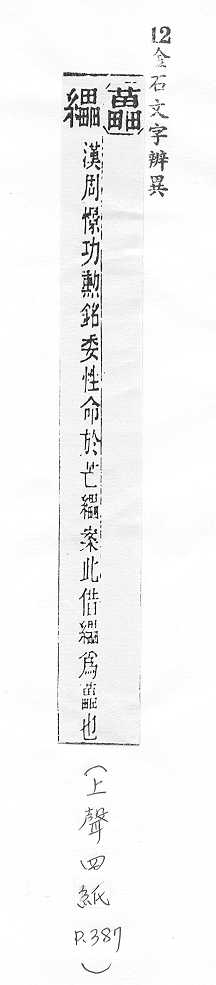 12金石文字辨異
蕌
漢周憬功勳銘委性命於芒案此借爲蕌也
(上聲四紙 P.387)